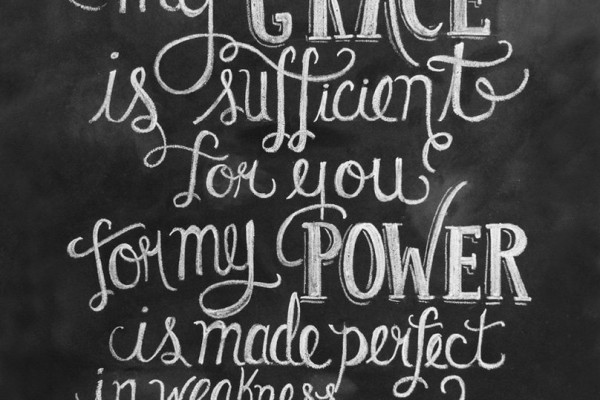 my GRACE
is sufficient
for you
for my POWER
is made perfect
in weakness